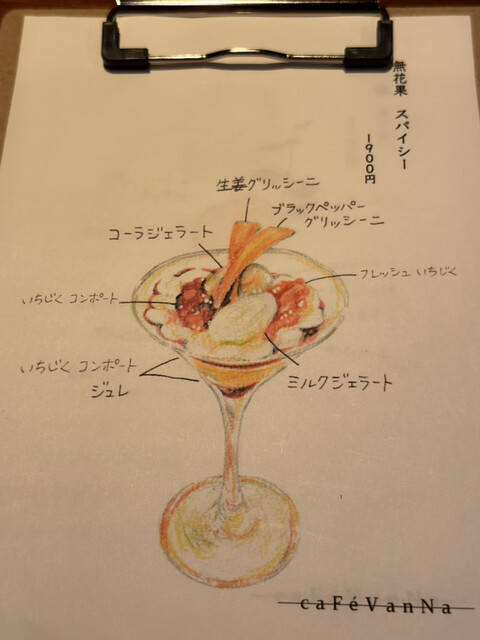 無花果 スパイシー
1900円
生姜グリッシーニ
ブラックペッパー
グリッシーニ
コーラジェラート
フレッシュ いちじく
いちじく コンポート
いちじく コンポート
ジュレ
ミルクジェラート
caFéVanNa